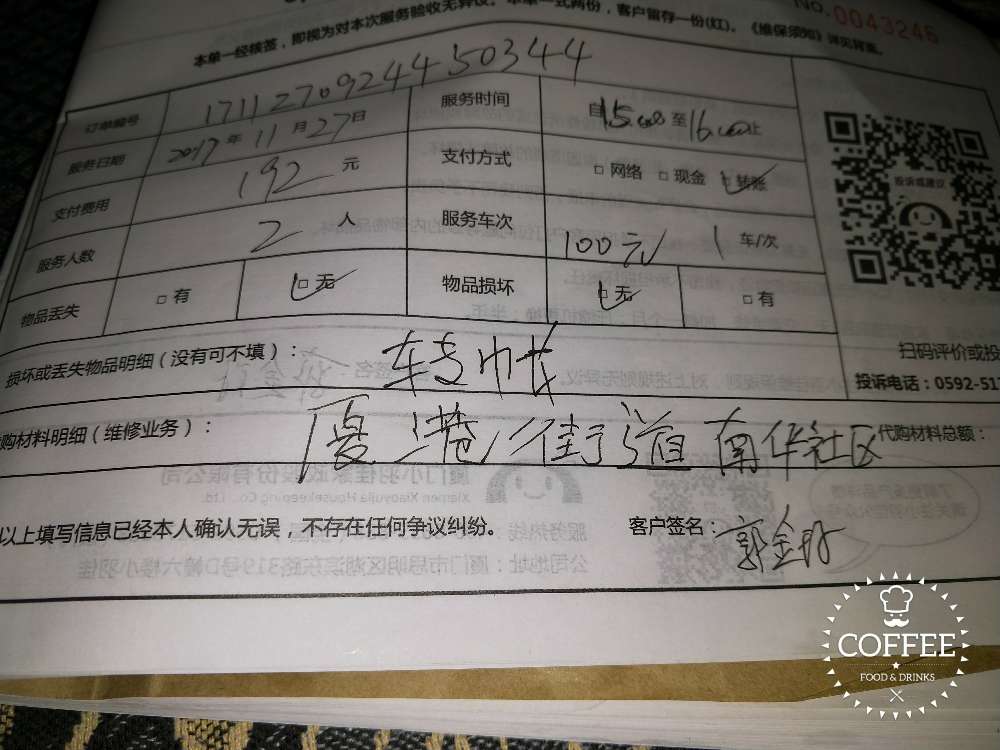 本单一经核签，即视为对本次服务验收无异议。本单一式两份，客户留存一份(红)。《维保须知》详见背面。
NO.0043246
订单编号 1711270924450344
服务时间 自15:00至16:00止
服务日期 2017年11月27日
支付方式 □网络 □现金 □转账
支付费用 192元
投诉或建议
服务人数 2人
服务车次 100元/ 1车/次
物品丢失 □有 □无
物品损坏 □无 □有
扫码评价或投
损坏或丢失物品明细（没有可不填）：转帐
投诉电话：0592-51
购材料明细（维修业务）：厦港街道南华社区
代购材料总额：
以上填写信息已经本人确认无误，不存在任何争议纠纷。
客户签名：郭金丹
COFFEE
FOOD & DRINKS